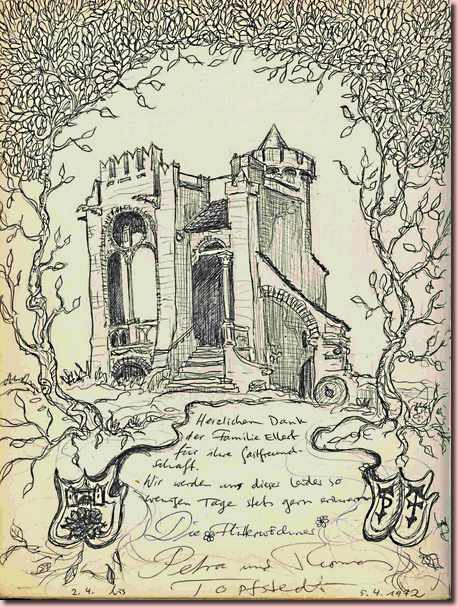 Herzlichen Dank
der Familie Ellert
für ihre Gastfreund-
schaft.
Wir werden uns dieser leider so
wenigen Tage stets gern erinnern
Die Flitterwöchner
Petra und Thomas
Topfstedt
2.4. bis 5.4.1972
P T